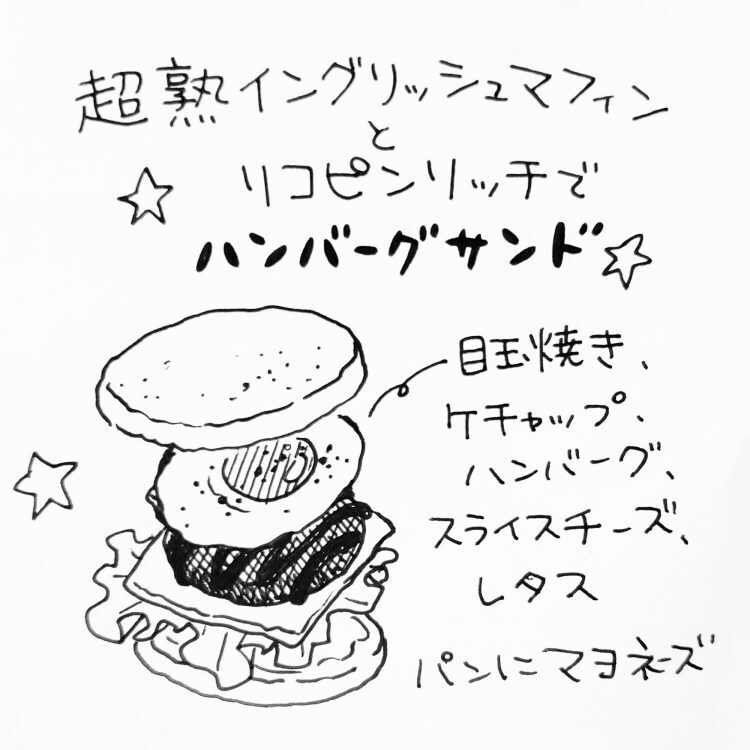 超熟イングリッシュマフィン
と
リコピンリッチで
ハンバーグサンド
目玉焼き、
ケチャップ、
ハンバーグ、
スライスチーズ、
レタス
パンにマヨネーズ